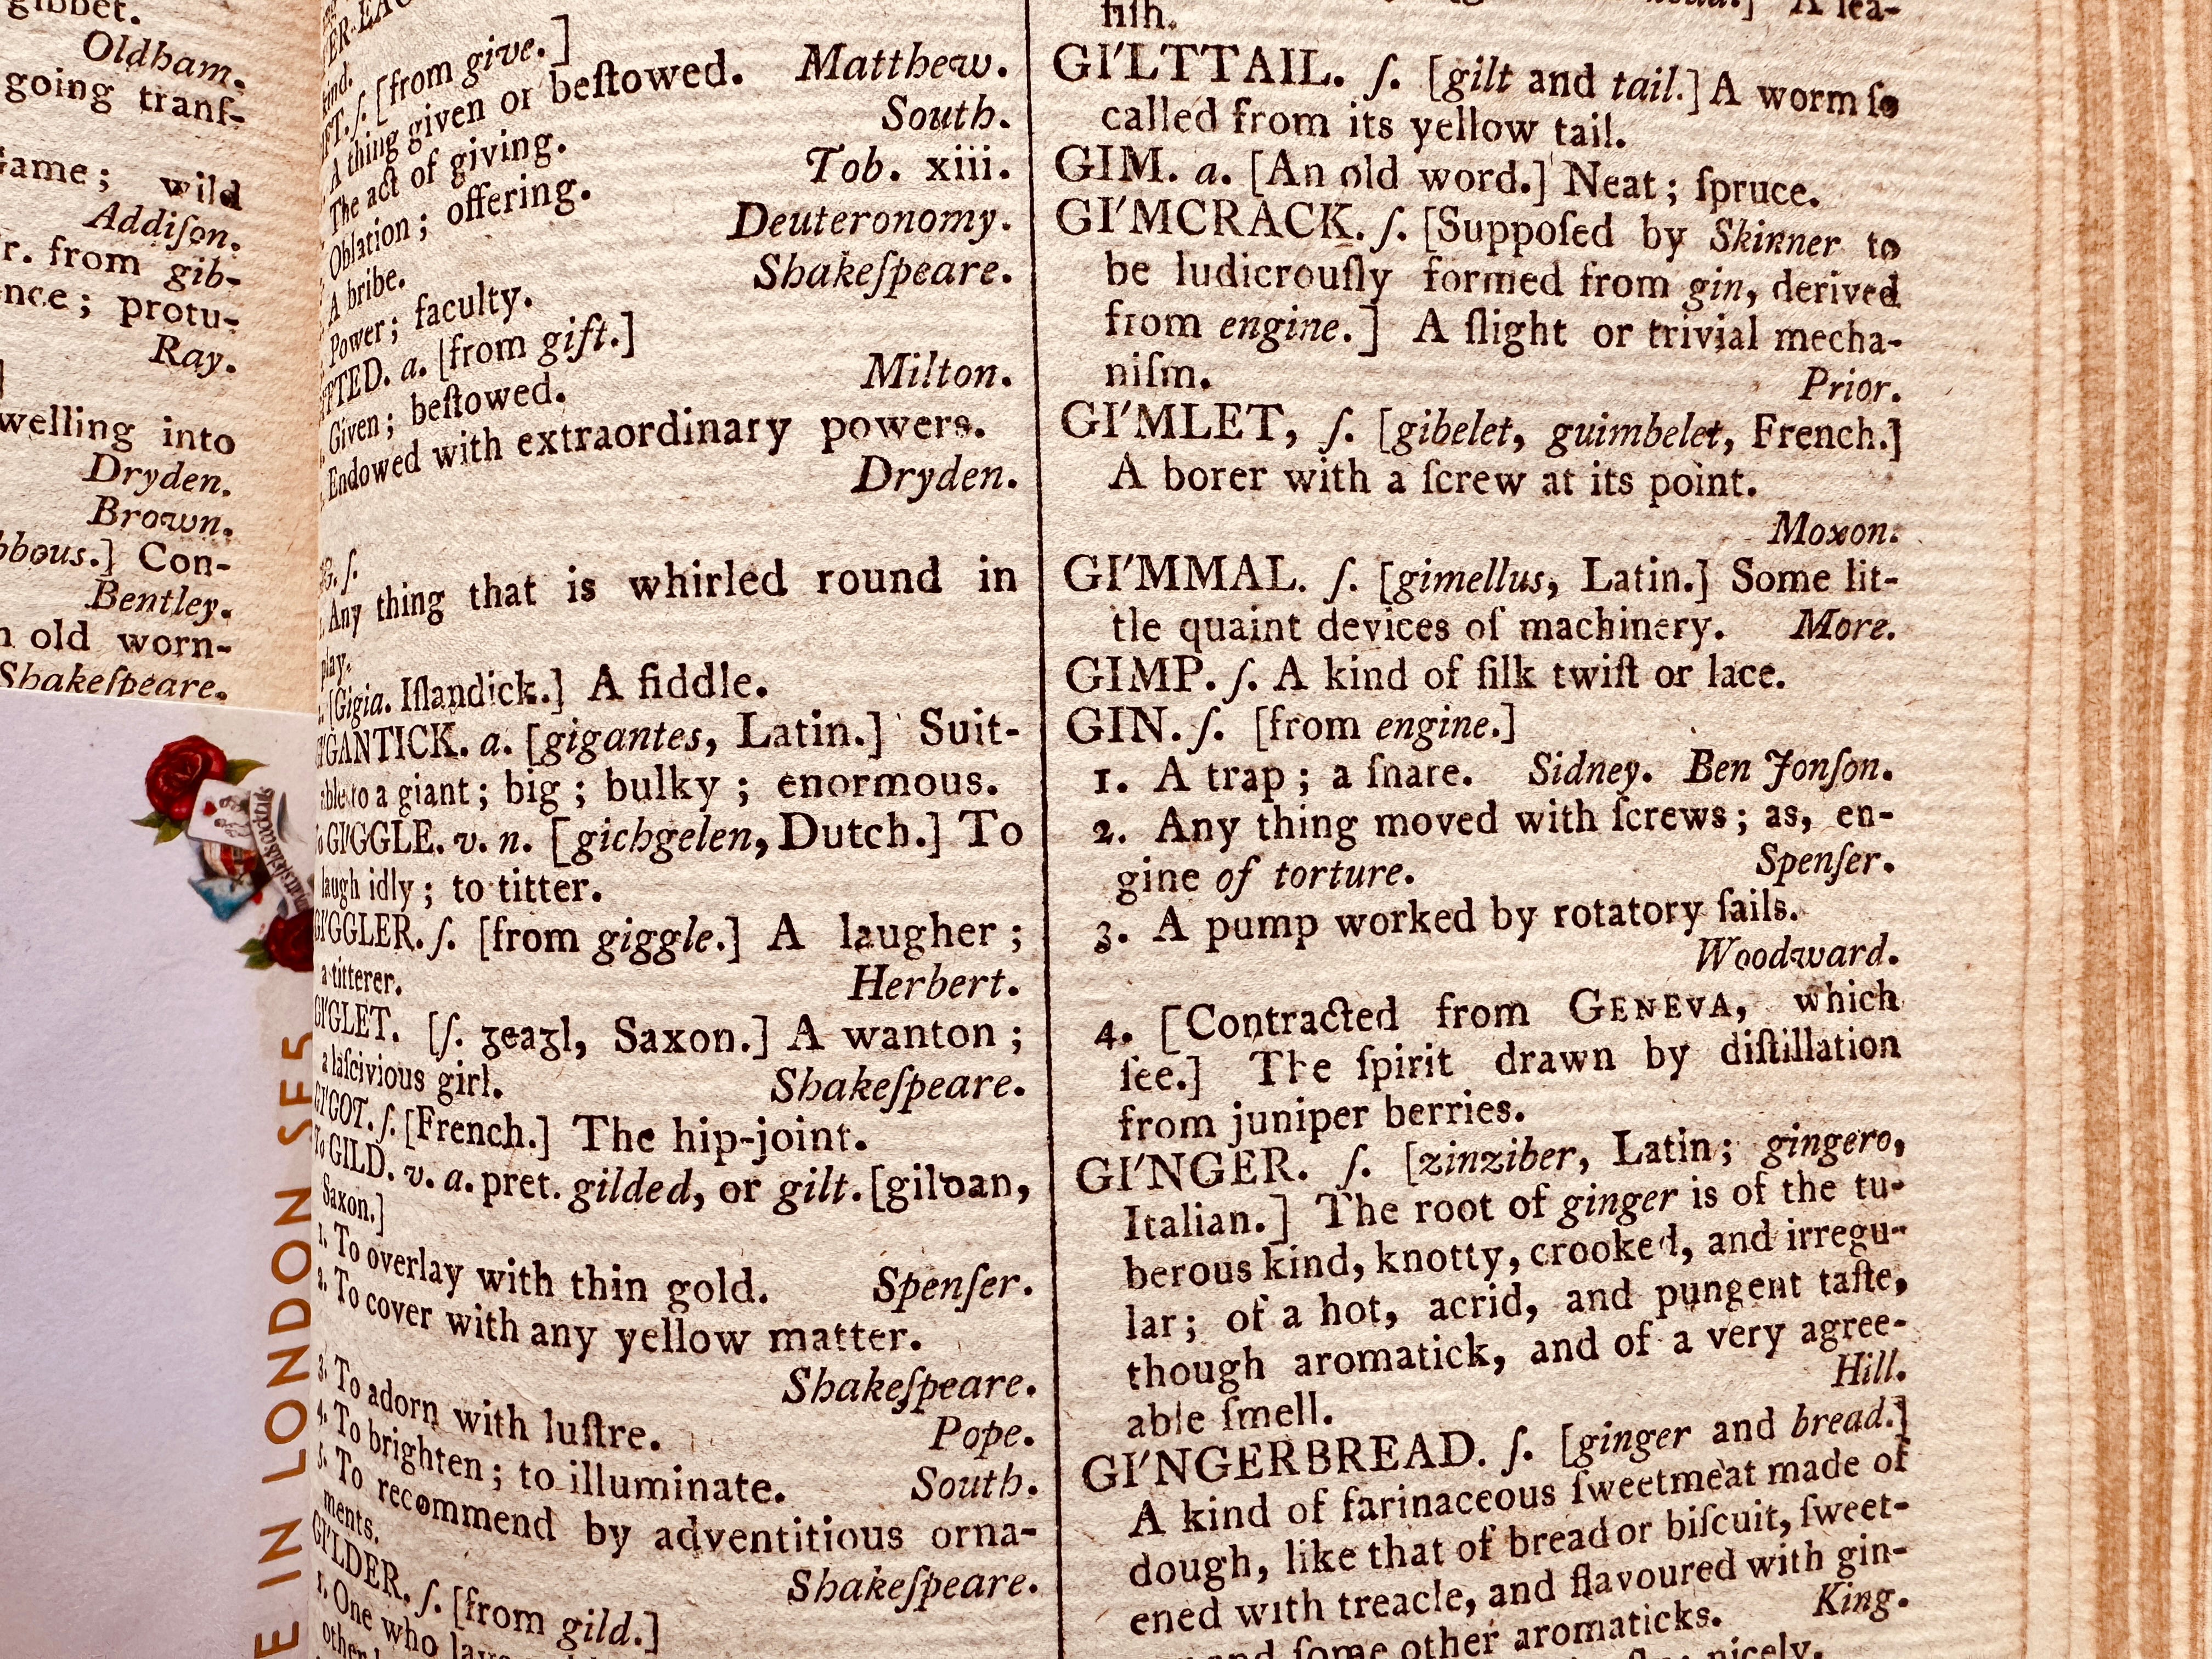 gibbet.
Oldham.
going tranſ-
Game; wild
Addiſon.
r. from gib-
nce; protu-
Ray.
]
welling into
Dryden.
Brown.
bbous.] Con-
Bentley.
n old worn-
Shakeſpeare.
E IN LONDON SE5
kind.
IFT. ſ. [from give.]
A thing given or beſtowed. Matthew.
The act of giving. South.
Oblation; offering. Tob. xiii.
Deuteronomy.
A bribe. Shakeſpeare.
Power; faculty.
IFTED. a. [from gift.]
Given; beſtowed. Milton.
Endowed with extraordinary powers.
Dryden.
IG. ſ.
1. Any thing that is whirled round in
play.
2. [Gigia. Iſlandick.] A fiddle.
GIGANTICK. a. [gigantes, Latin.] Suit-
able to a giant; big; bulky; enormous.
To GI'GGLE. v. n. [gichgelen, Dutch.] To
laugh idly; to titter.
GI'GGLER. ſ. [from giggle.] A laugher;
a titterer. Herbert.
GI'GLET. [ſ. ᵹeaᵹl, Saxon.] A wanton;
a laſcivious girl. Shakeſpeare.
GI'GOT. ſ. [French.] The hip-joint.
To GILD. v. a. pret. gilded, or gilt. [gilꝺan,
Saxon.]
1. To overlay with thin gold. Spenſer.
2. To cover with any yellow matter.
Shakeſpeare.
3. To adorn with luſtre. Pope.
4. To brighten; to illuminate. South.
5. To recommend by adventitious orna-
ments. Shakeſpeare.
GI'LDER. ſ. [from gild.]
1. One who lays
other
fiſh.
GI'LTTAIL. ſ. [gilt and tail.] A worm ſo
called from its yellow tail.
GIM. a. [An old word.] Neat; ſpruce.
GI'MCRACK. ſ. [Suppoſed by Skinner to
be ludicrouſly formed from gin, derived
from engine.] A ſlight or trivial mecha-
niſm. Prior.
GI'MLET, ſ. [gibelet, guimbelet, French.]
A borer with a ſcrew at its point.
Moxon.
GI'MMAL. ſ. [gimellus, Latin.] Some lit-
tle quaint devices of machinery. More.
GIMP. ſ. A kind of ſilk twiſt or lace.
GIN. ſ. [from engine.]
1. A trap; a ſnare. Sidney. Ben Jonſon.
2. Any thing moved with ſcrews; as, en-
gine of torture. Spenſer.
3. A pump worked by rotatory ſails.
Woodward.
4. [Contracted from GENEVA, which
ſee.] The ſpirit drawn by diſtillation
from juniper berries.
GI'NGER. ſ. [zinziber, Latin; gingero,
Italian.] The root of ginger is of the tu-
berous kind, knotty, crooked, and irregu-
lar; of a hot, acrid, and pungent taſte,
though aromatick, and of a very agree-
able ſmell. Hill.
GI'NGERBREAD. ſ. [ginger and bread.]
A kind of farinaceous ſweetmeat made of
dough, like that of bread or biſcuit, ſweet-
ened with treacle, and flavoured with gin-
and ſome other aromaticks. King.
nicely.